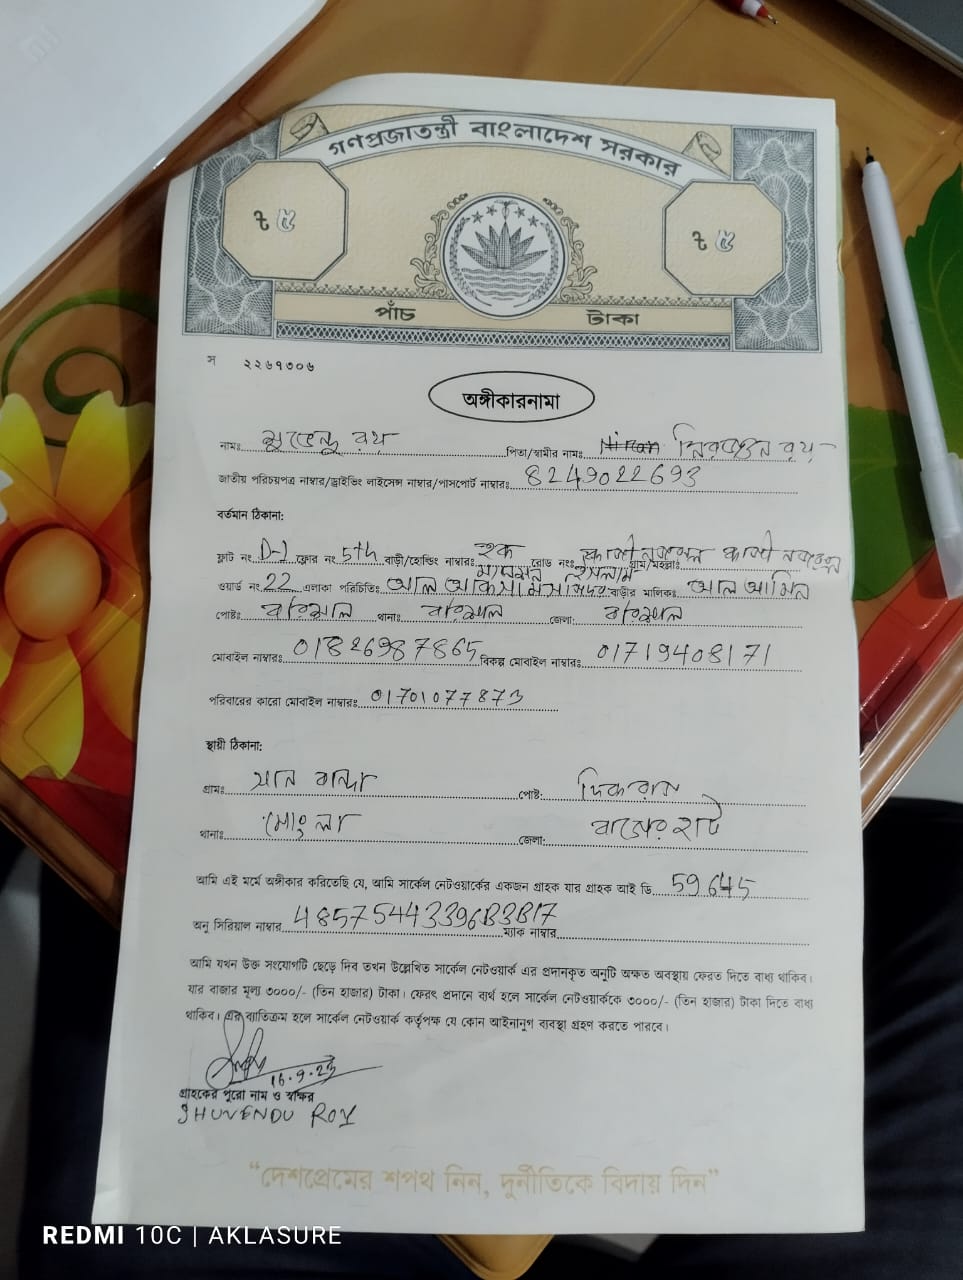 গণপ্রজাতন্ত্রী বাংলাদেশ সরকার
৳ ৫ ৳ ৫
পাঁচ টাকা
স ২২৬৭৩০৬
অঙ্গীকারনামা
নামঃ শুভেন্দু রয় পিতা/স্বামীর নামঃ নিরঞ্জন রয়
জাতীয় পরিচয়পত্র নাম্বার/ড্রাইভিং লাইসেন্স নাম্বার/পাসপোর্ট নাম্বারঃ 8249022693
বর্তমান ঠিকানা:
ফ্লাট নং D-1 ফ্লোর নং 5th বাড়ী/হোল্ডিং নাম্বারঃ হক ম্যানশন রোড নংঃ কাজী নজরুল ইসলাম গ্রাম/মহল্লাঃ কাজী নজরুল
ওয়ার্ড নং 22 এলাকা পরিচিতিঃ আল আকসা মসজিদ বাড়ীর মালিকঃ আল আমিন
পোষ্টঃ বরিশাল থানাঃ বরিশাল জেলা: বরিশাল
মোবাইল নাম্বারঃ 01826987865 বিকল্প মোবাইল নাম্বারঃ 01719408171
পরিবারের কারো মোবাইল নাম্বারঃ 01701077873
স্থায়ী ঠিকানা:
গ্রামঃ বান্দা পোষ্ট:
থানাঃ মোংলা জেলা: বাগেরহাট
আমি এই মর্মে অঙ্গীকার করিতেছি যে, আমি সার্কেল নেটওয়ার্কের একজন গ্রাহক যার গ্রাহক আই ডি 59645
অনু সিরিয়াল নাম্বার 48575443396B3B17 ম্যাক নাম্বার
আমি যখন উক্ত সংযোগটি ছেড়ে দিব তখন উল্লেখিত সার্কেল নেটওয়ার্ক এর প্রদানকৃত অনুটি অক্ষত অবস্থায় ফেরত দিতে বাধ্য থাকিব।
যার বাজার মূল্য ৩০০০/- (তিন হাজার) টাকা। ফেরৎ প্রদানে ব্যর্থ হলে সার্কেল নেটওয়ার্ককে ৩০০০/- (তিন হাজার) টাকা দিতে বাধ্য
থাকিব। এর ব্যাতিক্রম হলে সার্কেল নেটওয়ার্ক কর্তৃপক্ষ যে কোন আইনানুগ ব্যবস্থা গ্রহণ করতে পারবে।
16.9.23
গ্রাহকের পুরো নাম ও স্বাক্ষর
SHUVENDU ROY
“দেশপ্রেমের শপথ নিন, দুর্নীতিকে বিদায় দিন”
REDMI 10C | AKLASURE